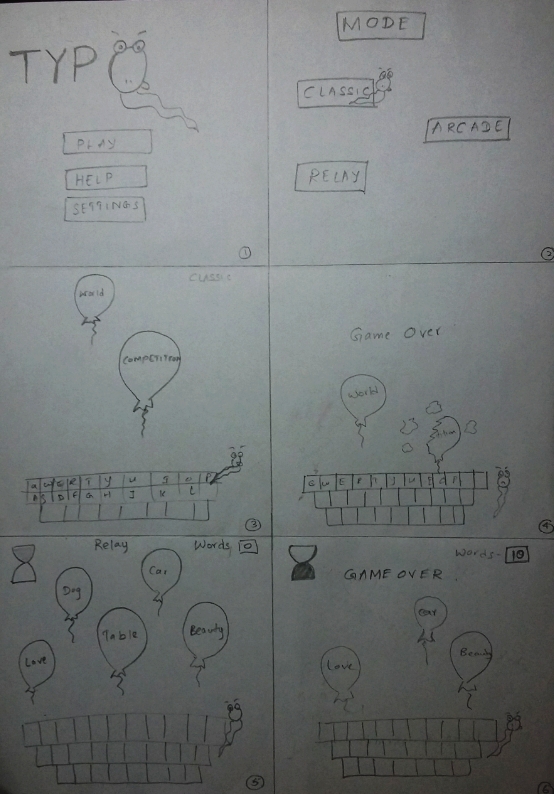 TYPO
PLAY
HELP
SETTINGS
1
MODE
CLASSIC
ARCADE
RELAY
2
CLASSIC
World
COMPETITION
Q W E R T Y U I O P
A S D F G H J K L
3
Game Over
World
4
Relay
Words 0
Car
Dog
Table
Beauty
Love
5
Words- 10
GAME OVER.
Car
Beauty
Love
6